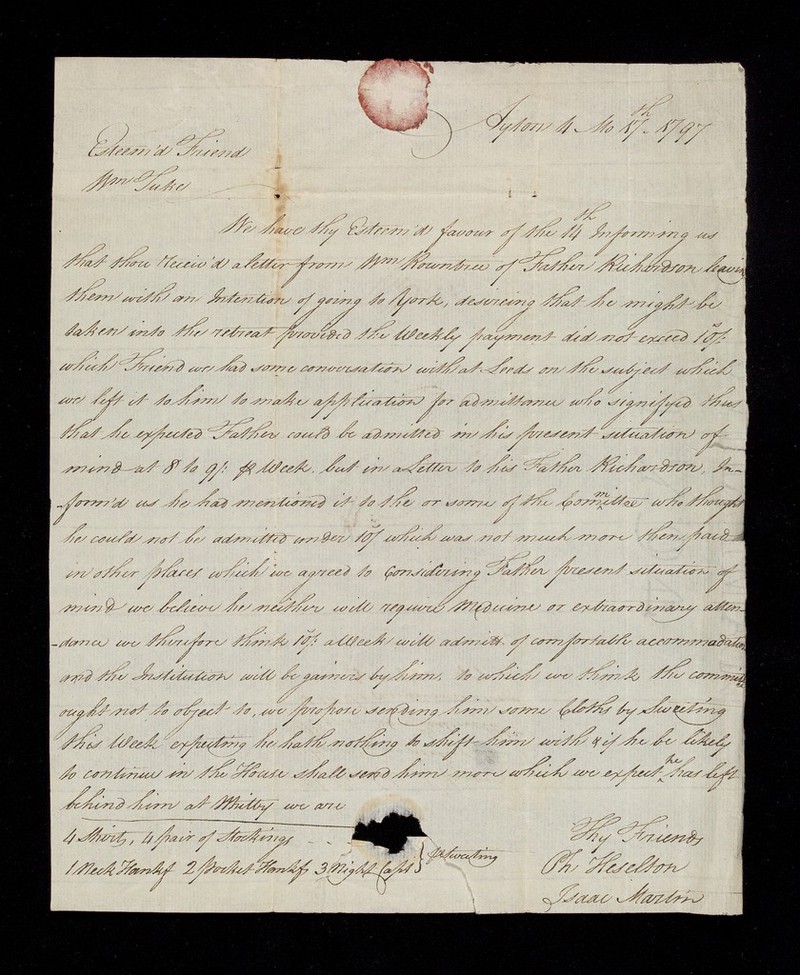 Ayton 4 Mo 17th 1797
Esteem'd Friend
Wm Tuke
We have thy Esteem'd favour of the 14th Informing us
that thou receiv'd a letter from Wm Rowntree of Father Richardson leaving
them with an Intention of going to York, desireing that he might be
taken into the retreat provided the Weekly payment did not exceed 10/:
which Friend we had some conversation with at Leeds on the subject which
we left it to him to make application for admittance who signifyed thus
that he expected Father could be admitted in his present situation of
mind at 8 to 9/: ⅌ Week. but in a Letter to his Father Richardson, In-
-form'd us he had mentioned it to the or some of the Committee who thought
he could not be admitted under 10/ which was not much more then paid
in other places which we agreed to Considering Father present situation of
mind we believe he neither will require Medicine or extraordinary atten-
-dance we therefore think 10/: a Week will admitt of comfortable accommadation
and the Institution will be gainers by him, to which we think the committe
ought not to object to, we propose sending him some Cloths by Sweeting
this Week expecting he hath nothing to shift him with & if he be likely
to continue in the House shall send him more which we expect he has left
behind him at Whitby we are
4 Shirts, 4 pair of Stockings
Thy Friends
1 Neck Hankf 2 pocket Hankfs 3 Night Caps } ⅌ Sweeting
Ph Heselton
Isaac Martin